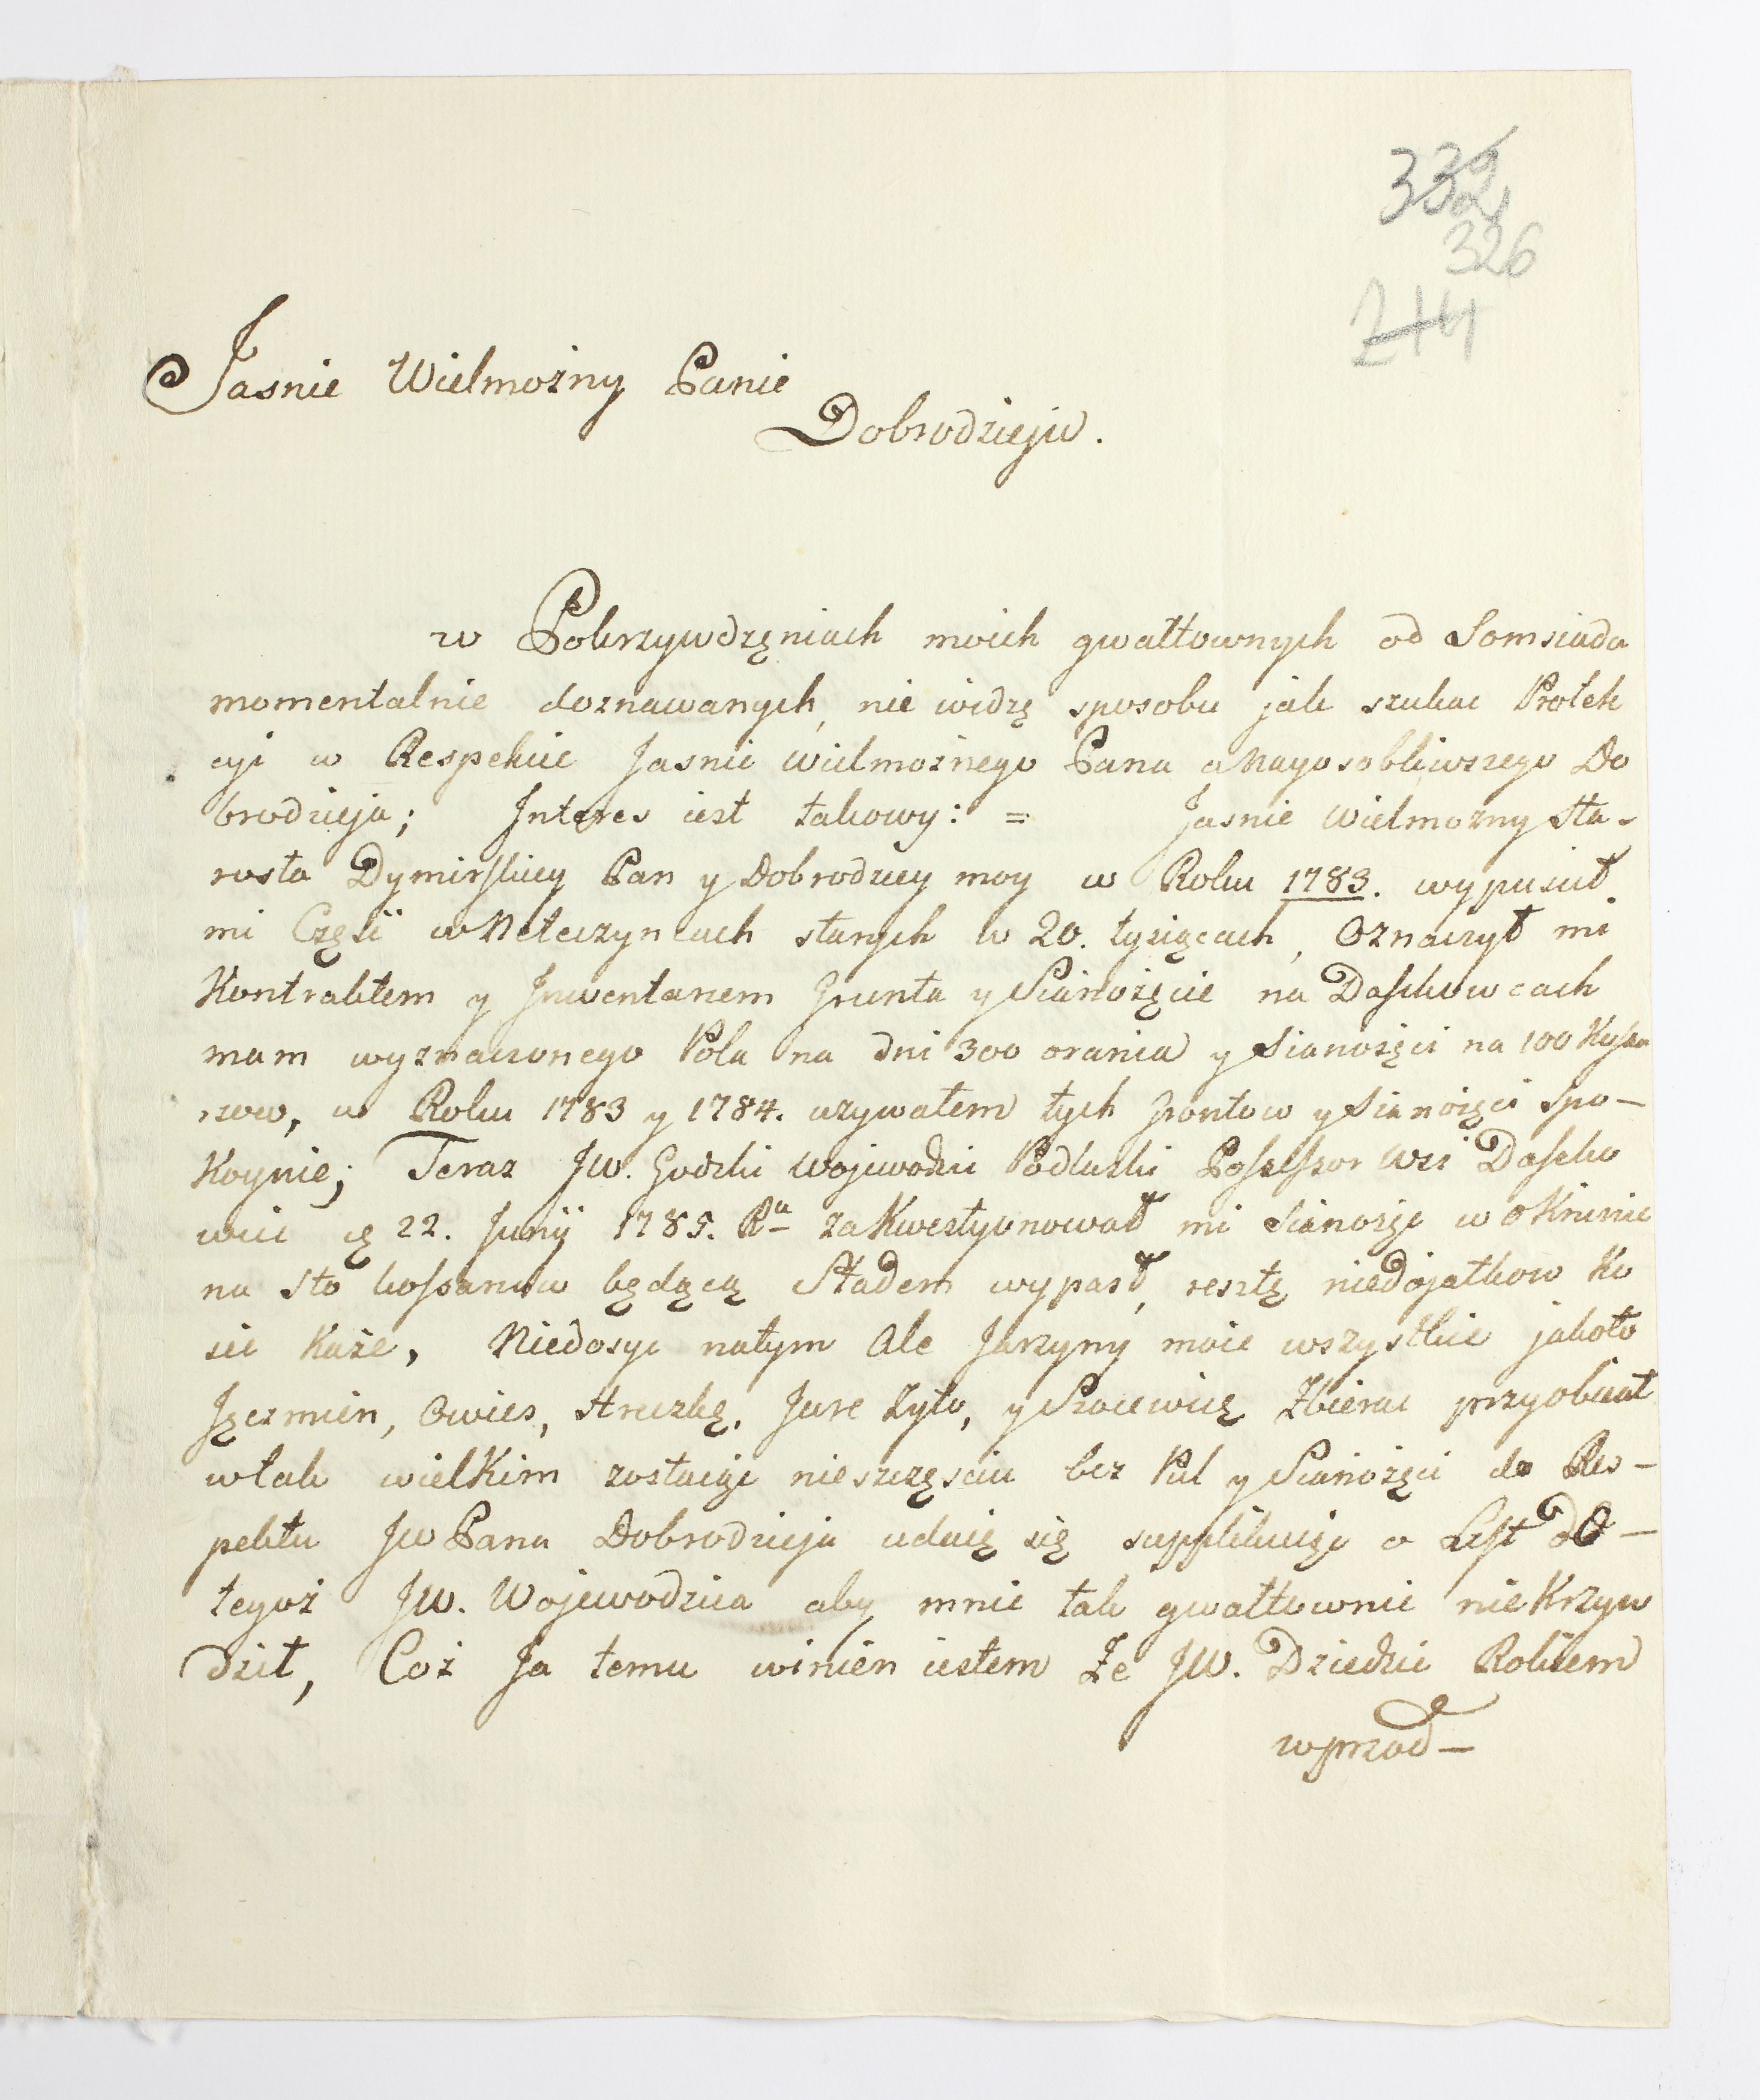 339
321
326
244
Jasnie Wielmożny Panie
Dobrodzieju.
w Pokrzywdzęniach moich gwałtownych od Somsiada
momentalnie doznawanych, nie widzę sposobu jak szukac Protek
cyi w Respekcie Jasnie Wielmożnego Pana a Nayosobliwszego Do
brodzieja; Interes iest takowy: = Jasnie Wielmożny Sta-
rosta Dymirskiey Pan y Dobrodziey moy w Roku 1783. wypuscił
mi Część w Neteczyncach starych w 20. tysięcach, Oznaczył mi
Kontraktem y Inwentarzem Grunta y Sianożęcie na Daszkowcach
mam wyznaczonego Pola na dni 300 orania y Sianożęci na 100 Kossa
rzow, w Roku 1783 y 1784. uzywałem tych Grontow y Sianożęci Spo-
Koynie; Teraz JW. Godzki Wojewodzic Podlaski Possessor Wsi Daszko
wiec d 22. Junÿ 1785. Ra zaKwestyonował mi Sianożęc w oKninie
na Sto kossarzow będęcą Stadem wypasł, resztę niedojatkow Ko
sic Każe, Niedosyc natym Ale Jarzyny moie wszystkie jakoto
Jęczmien, Owies, Hreczkę, Jare Zyto, y Soczewicę Zbierac przyobiecał
wtak wielKim zostaięc nieszczęsciu bez Pul y Sianożęci do Res-
pektu JW Pana Dobrodzieja udaię się supplikuięc o List do-
tegoż JW. Wojewodzica aby mnie tak gwałtownie nieKrzyw
dził, Coż Ja temu winien iestem Że JW. Dziedzic Rokiem
wprzod-